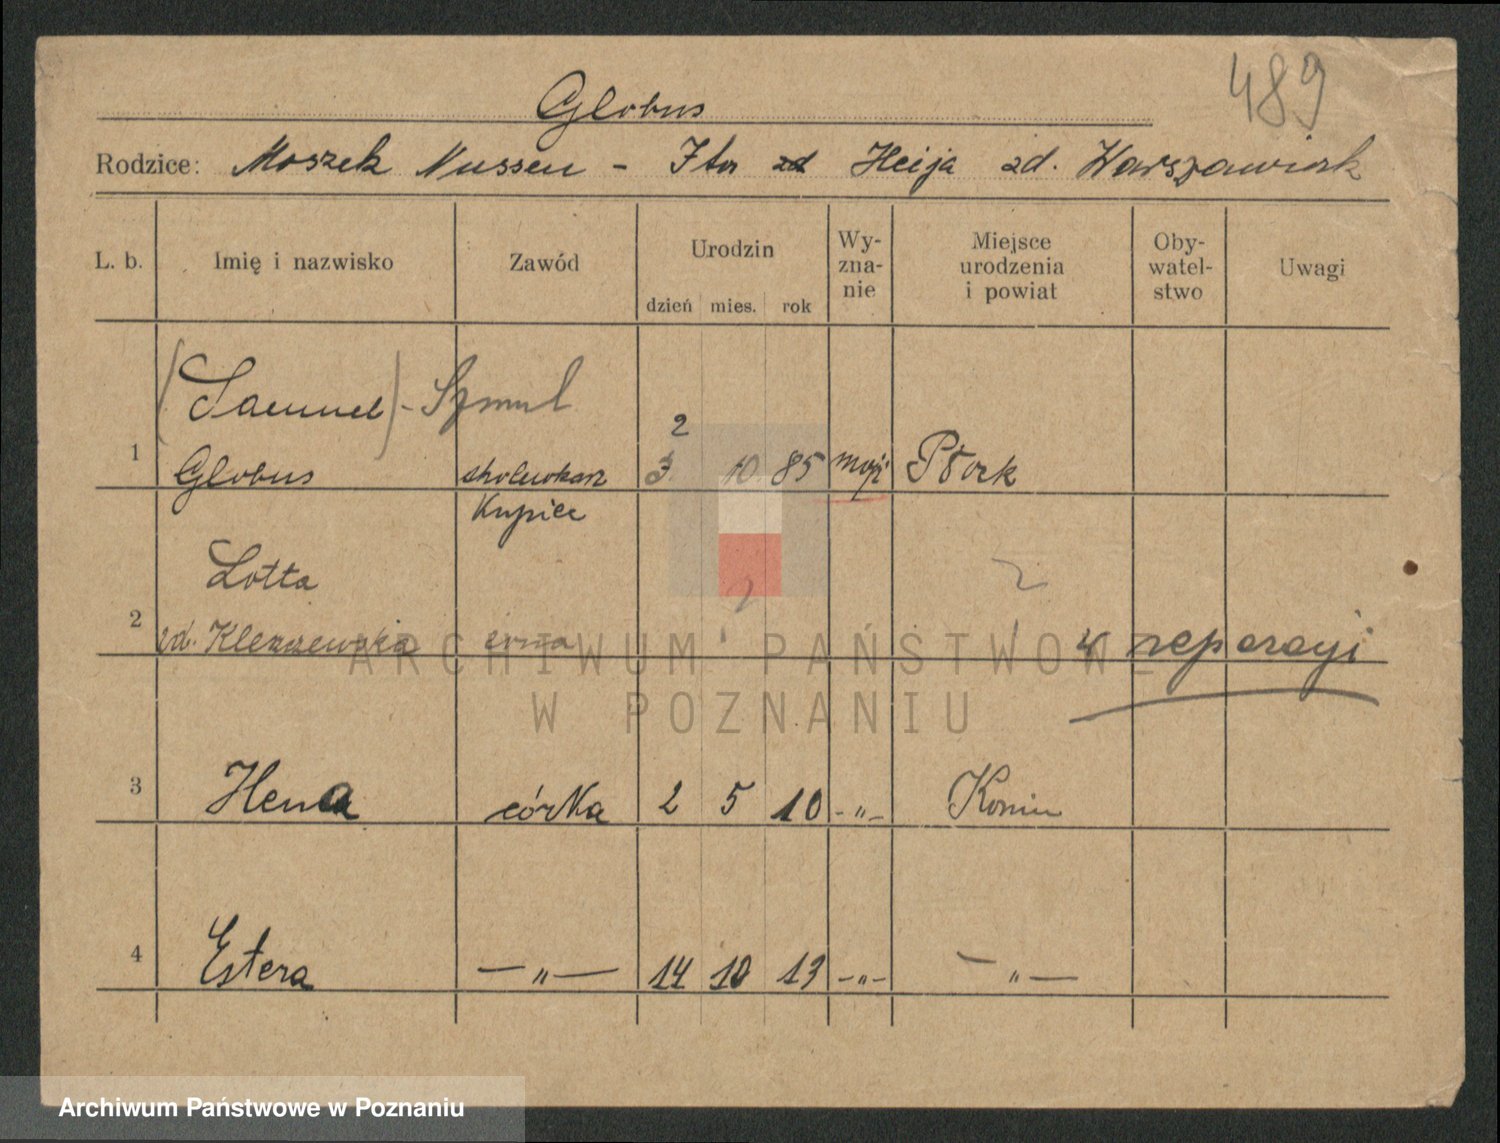 489
Globus
Rodzice: Moszek Nussen - Ita zd Heija zd. Warszawiak
L. b. Imię i nazwisko Zawód Urodzin Wy- Miejsce Oby- Uwagi
zna- urodzenia watel-
dzień mies. rok nie i powiat stwo
(Samuel) - Szmul
2
1 Globus 3. 10. 85 mojż Płock
Kupiec
Lotta
2 zd. Kleczewska żona w reparacji
3 Hena córka 2 5 10 -"- Konin
4 Estera -"- 14 10 13 -"- -"-
ARCHIWUM PAŃSTWOWE
W POZNANIU
Archiwum Państwowe w Poznaniu